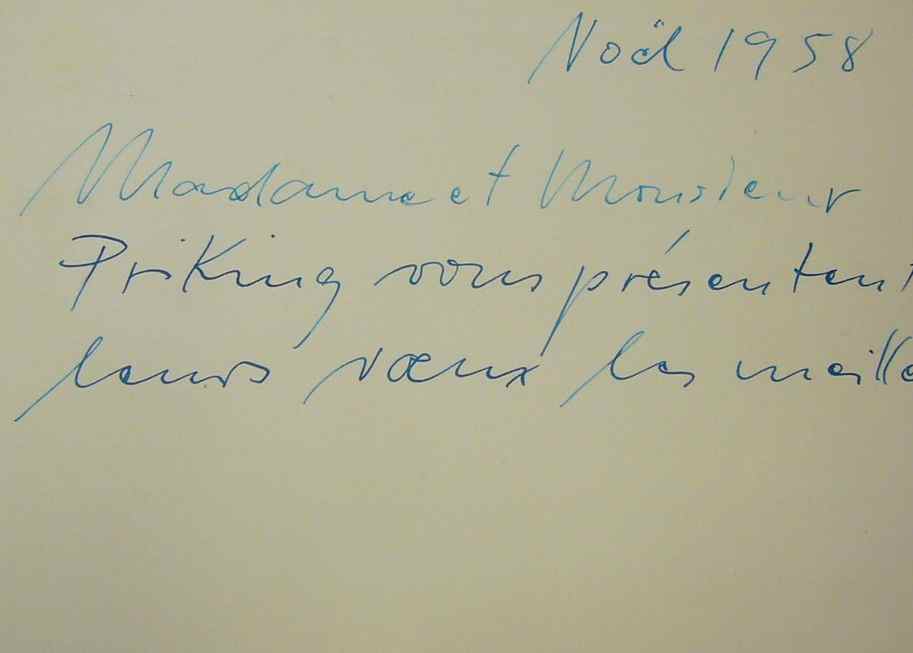 Noël 1958
Madame et Monsieur
PriKing vous présentent
leurs vœux les meille